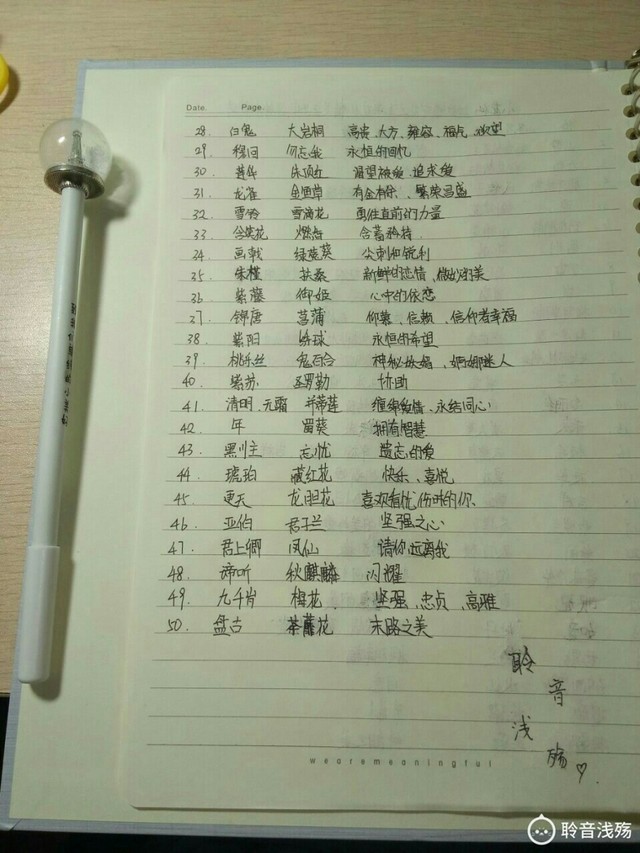 Date. Page.
28. 白鬼 大岩桐 高贵、大方、雍容、福气、欲望
29. 穆同 勿忘我 永恒的回忆
30. 莲华 朱顶红 渴望被爱、追求爱
31. 龙雀 金鱼草 有金有余、繁荣昌盛
32. 雪 雪滴花 勇往直前的力量
33. 含笑花 含蓄矜持
34. 画戟 绿 葵 尖刺和锐利
35. 朱槿 扶桑 新鲜的恋情、微妙的美
36. 紫藤 御姬 心中的依恋
37. 锦唐 菖蒲 仰慕、信赖、信仰者幸福
38. 紫阳 绣球 永恒的希望
39. 桃乐丝 鬼百合 神秘妖娆、婀娜迷人
40. 紫苏 罗勒 协助
41. 清明、元霜 并蒂莲 缠绵爱情、永结同心
42. 年 蜀葵 拥有智慧
43. 黑川主 忘忧 遗忘的爱
44. 琥珀 藏红花 快乐、喜悦
45. 更天 龙胆花 喜欢有忧伤时的你
46. 亚伯 君子兰 坚强之心
47. 君上卿 凤仙 请你远离我
48. 谛听 秋麒麟 闪耀
49. 九千岁 梅花、 坚强、忠贞、高雅
50. 盘古 荼蘼花 末路之美
聆
音
浅
殇♡.
wearemeaningful
聆音浅殇